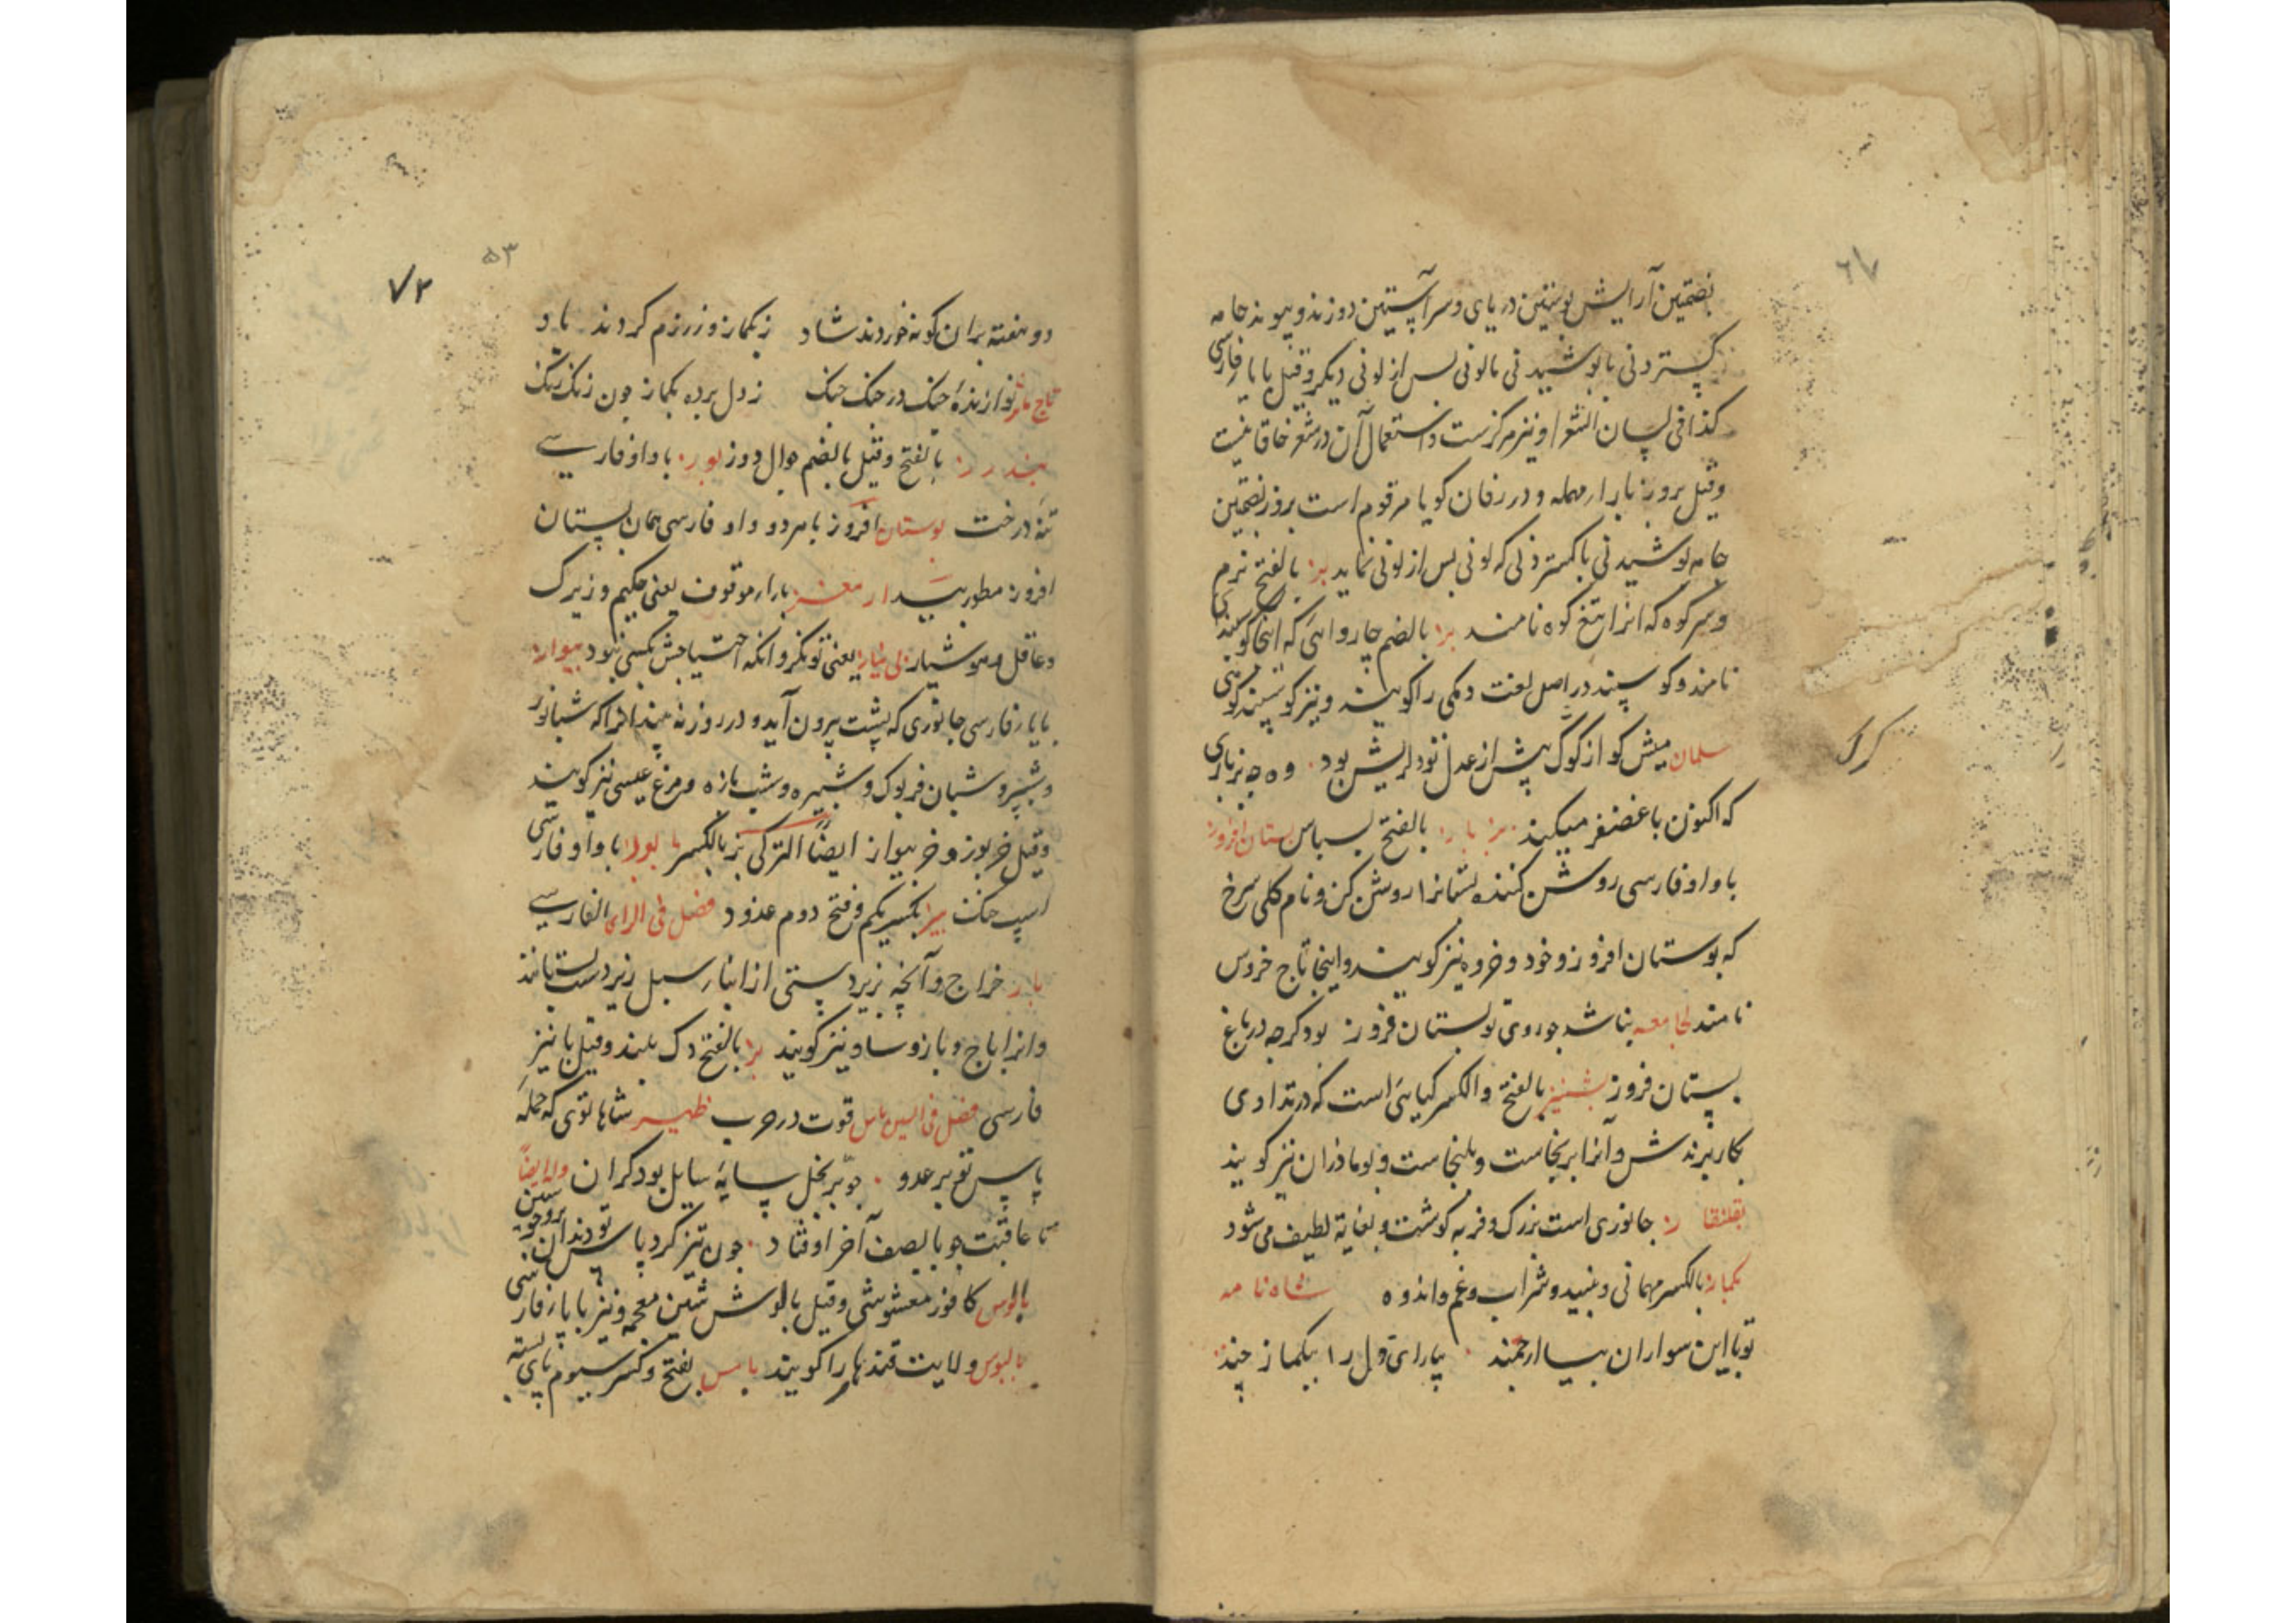 بضمتین آرایش پوستین در پای و سر آستین دوزند و پیوند جامه
کستردنی یا پوشیدنی تا لونی پس از لونی دیکر و قیل با یا فارسی
کذا فی لسان الشعرا و نیز مرکزست و استعمال آن در شعر خاقانیست
و قیل بروز با راء مهمله و در زفان کویا مرقوم است بروز بضمتین
جامه پوشیدنی یا کستردنی که لونی پس از لونی نماید بز بالفتح نرم
و سر کوه که انرا تیغ کوه نامند بز بالضم چاروایی که اینجا کوسپند
نامند و کوسپند در اصل لغت دمکی را کویند و نیز کوسپند کوهی
سلمان میش کو از کرک پیش از عدل تو دلریش بود
کرک
که اکنون با غضنفر میکند بالفتح لباس بستان افروز
با واو فارسی روشن کننده بستانرا روشن کن و نام کلی سرخ
که بوستان افروز و خود و خروه نیز کویند و اینجا تاج خروس
نامند لجامعه بناشد چو روی تو بستان فروز بود کرچه در باغ
بستان فروز بالفتح و الکسر کیاهی است که در تداوی
بکار برندش و آنرا برنجاست و بلنجاست و بوماذران نیز کویند
جانوری است بزرک و فربه کوشت و بغایة لطیف می شود
بکماز بالکسر مهمانی و نبید و شراب و غم و اندوه شاه نامه
تو با این سواران بسیار ارجمند بیارای دل را ببکماز چند
۵۳
۷۲
دو هفته بران کونه خوردند شاد ز بکماز وز رزم کردند یاد
تاج مآثر نوازندۀ چنک در چنک چنک ز دل برده بکماز چون زنک رنک
بندرز بالفتح و قیل بالضم جوال دوز بوز با واو فارسی
تنه درخت بوستان افروز با هر دو واو فارسی همان بستان
افروز مطور بیدار مغز با راء موقوف یعنی حکیم و زیرک
و عاقل و هوشیار بی نیاز یعنی تونکر و انکه احتیاجش بکسی نبود بیواز
با یا فارسی جانوری که بشب بیرون آید و در روز نه بیند انرا که شبانور
و شبپر و شبان فریوک و شبپره و شب یازه و مرغ عیسی نیز کویند
و قیل خربوز و خربیواز ایضا الترکی بز بالکسر ما بوز با واو فارسی
اسپ خنک بیز بکسر یکم و فتح دوم عدو فصل فی الزای الفارسی
باژ خراج و آنچه زبردستی از انبار سبیل زیردست ستانند
و انرا باج و باز و ساو نیز کویند بژ بالفتح دک بلند و قیل با نیز
فارسی فصل فی السین باس قوت در حرب ظهیر شاها توی که حمله
پاس تو بر عدو چو بر بخیل سایۀ سایل بود کران وله ایضا
تا عاقبت چو با بصف آخر اوفتاد چون تیز کرد پاس تو دندان بروحو سین
بالوس کافور مغشوشی و قیل بالوش شین معجمه و نیز با یا فارسی
بالیوس ولایت قندهار را کویند بامس بفتح و کسر سیوم پای بسته